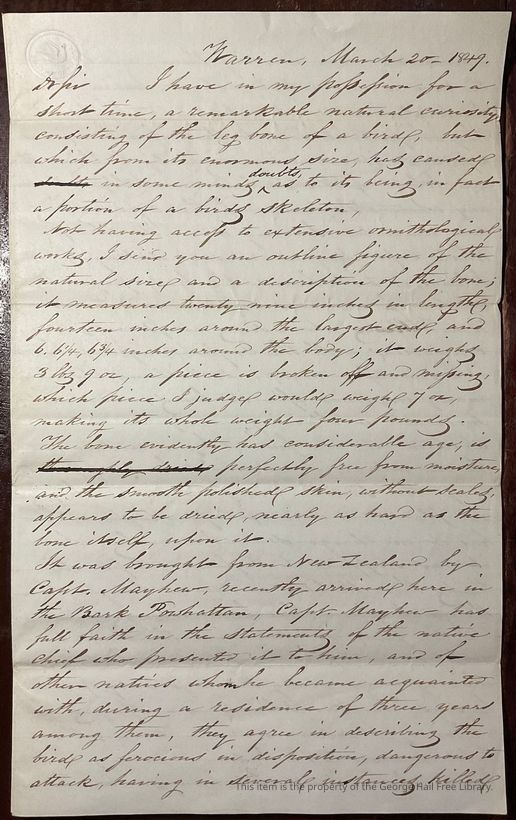 Warren, March 20 - 1849.
Dr Sir I have in my possession for a
short time, a remarkable natural curiosity,
consisting of the leg bone of a bird, but
which from its enormous size, has caused
doubts,
in some minds as to its being, in fact
a portion of a birds skeleton,
Not having access to extensive ornithological
works, I send you an outline figure of the
natural size and a description of the bone;
it measures twenty nine inches in length,
fourteen inches around the largest end, and
6. 6 1/4, 6 3/4 inches around the body; it weighs
3 lbs 9 oz, a piece is broken off and missing,
which piece I judge would weigh 7 oz,
making its whole weight four pounds.
The bone evidently has considerable age; is
perfectly free from moisture,
and the smooth polished skin, without scales,
appears to be dried, nearly as hard as the
bone itself, upon it.
It was brought from New Zealand by
Capt. Mayhew, recently arrived here in
the Bark Powhattan, Capt Mayhew has
full faith in the statements of the native
chief who presented it to him, and of
other natives whom he became acquainted
with, during a residence of three years
among them, they agree in describing the
bird as ferocious in disposition, dangerous to
attack, having in several instances killed
This item is the property of the George Hail Free Library.